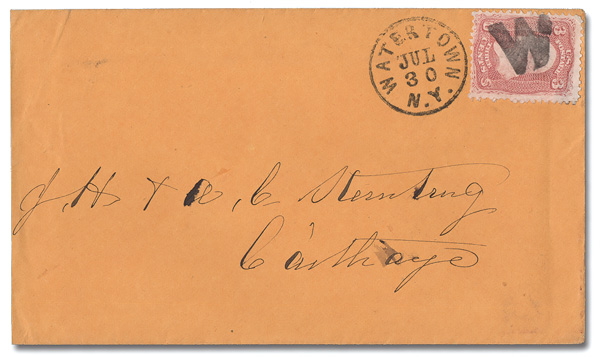 WATERTOWN
JUL
30
N.Y.
W
3 U.S. 3
J, H & A, C Sternberg
Carthage